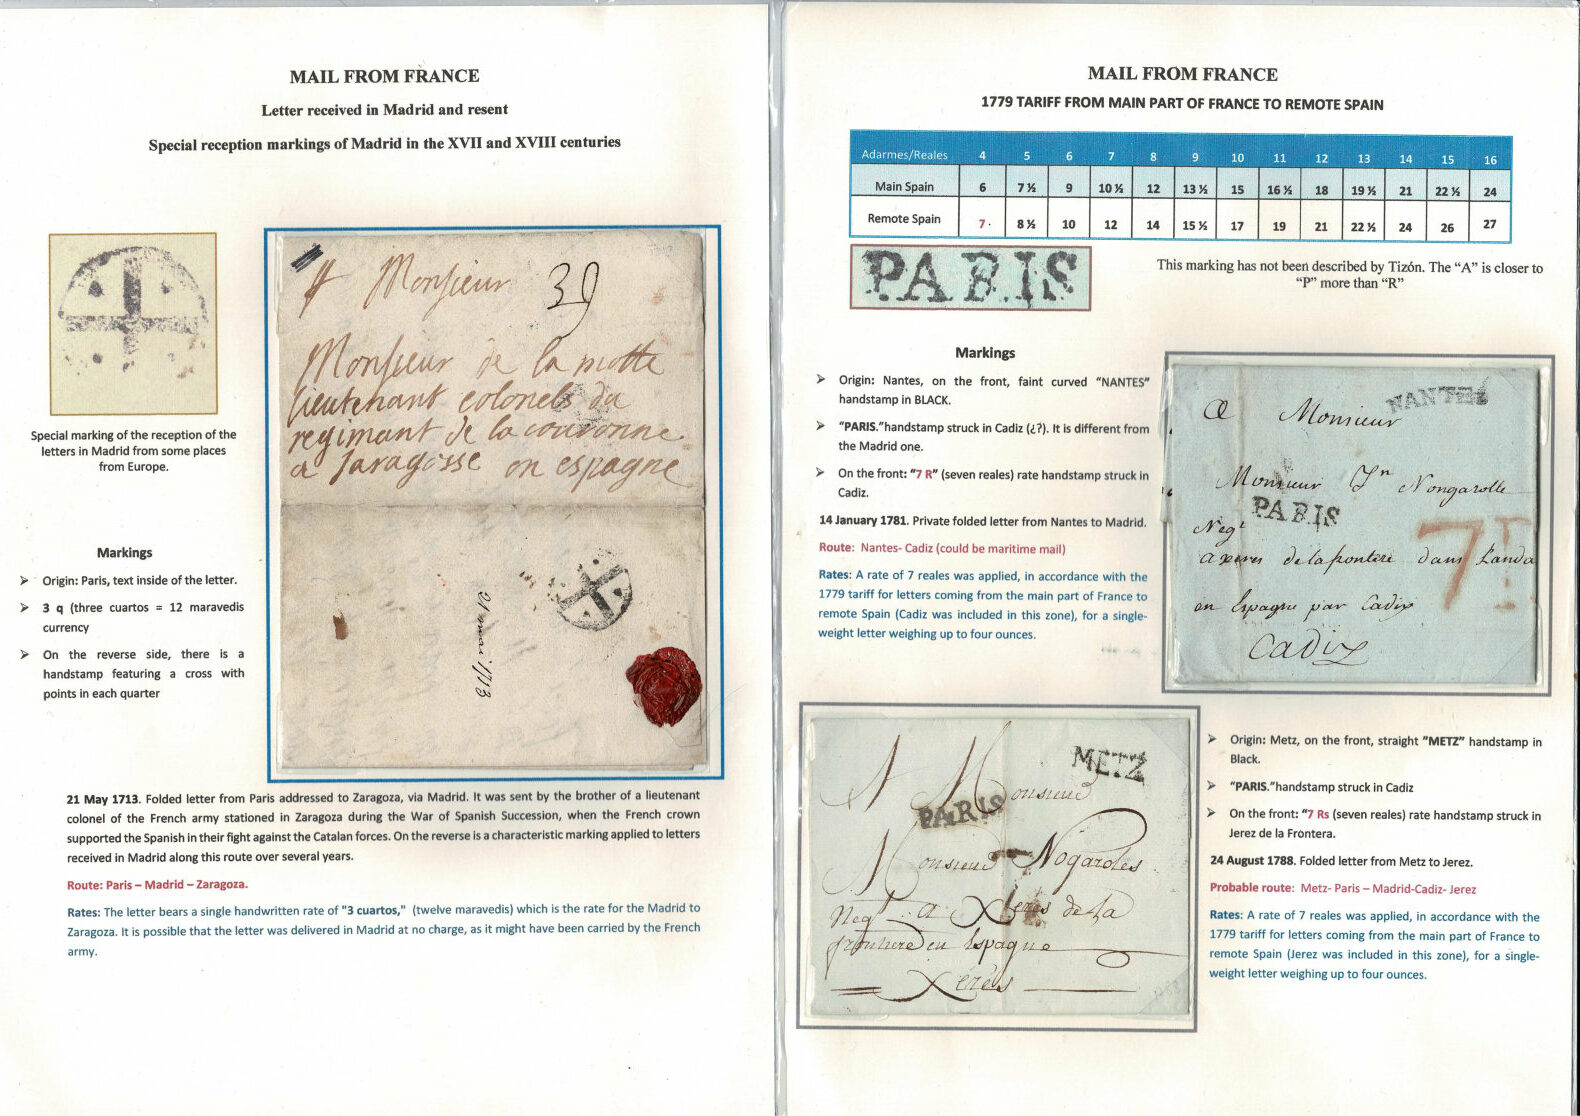 MAIL FROM FRANCE
Letter received in Madrid and resent
Special reception markings of Madrid in the XVII and XVIII centuries
Special marking of the reception of the
letters in Madrid from some places
from Europe.
Markings
➢ Origin: Paris, text inside of the letter.
➢ 3 q (three cuartos = 12 maravedis
currency
➢ On the reverse side, there is a
handstamp featuring a cross with
points in each quarter
Monsieur 39
Monsieur de la motte
lieutenant colonels du
regimant de la couronne
a Saragosse en espagne
21 mai 1713
21 May 1713. Folded letter from Paris addressed to Zaragoza, via Madrid. It was sent by the brother of a lieutenant
colonel of the French army stationed in Zaragoza during the War of Spanish Succession, when the French crown
supported the Spanish in their fight against the Catalan forces. On the reverse is a characteristic marking applied to letters
received in Madrid along this route over several years.
Route: Paris – Madrid – Zaragoza.
Rates: The letter bears a single handwritten rate of "3 cuartos," (twelve maravedis) which is the rate for the Madrid to
Zaragoza. It is possible that the letter was delivered in Madrid at no charge, as it might have been carried by the French
army.
MAIL FROM FRANCE
1779 TARIFF FROM MAIN PART OF FRANCE TO REMOTE SPAIN
Adarmes/Reales 4 5 6 7 8 9 10 11 12 13 14 15 16
Main Spain 6 7 ½ 9 10 ½ 12 13 ½ 15 16 ½ 18 19 ½ 21 22 ½ 24
Remote Spain 7 · 8 ½ 10 12 14 15 ½ 17 19 21 22 ½ 24 26 27
PARIS
This marking has not been described by Tizón. The “A” is closer to
“P” more than “R”
Markings
➢ Origin: Nantes, on the front, faint curved “NANTES”
handstamp in BLACK.
➢ “PARIS.”handstamp struck in Cadiz (¿?). It is different from
the Madrid one.
➢ On the front: “7 R” (seven reales) rate handstamp struck in
Cadiz.
14 January 1781. Private folded letter from Nantes to Madrid.
Route: Nantes- Cadiz (could be maritime mail)
Rates: A rate of 7 reales was applied, in accordance with the
1779 tariff for letters coming from the main part of France to
remote Spain (Cadiz was included in this zone), for a single-
weight letter weighing up to four ounces.
NANTES
A Monsieur
Monsieur Jn Nongarolle
PARIS
Negt
a xeres de la frontere dans Landa
en Espagne par Cadix
Cadix
7 R
METZ
A Monsieur
PARIS
Monsieur Nogaroles
Negt a Xeres de la
frontiere en Espagne
Xerés
➢ Origin: Metz, on the front, straight ”METZ” handstamp in
Black.
➢ “PARIS.”handstamp struck in Cadiz
➢ On the front: “7 Rs (seven reales) rate handstamp struck in
Jerez de la Frontera.
24 August 1788. Folded letter from Metz to Jerez.
Probable route: Metz- Paris – Madrid-Cadiz- Jerez
Rates: A rate of 7 reales was applied, in accordance with the
1779 tariff for letters coming from the main part of France to
remote Spain (Jerez was included in this zone), for a single-
weight letter weighing up to four ounces.